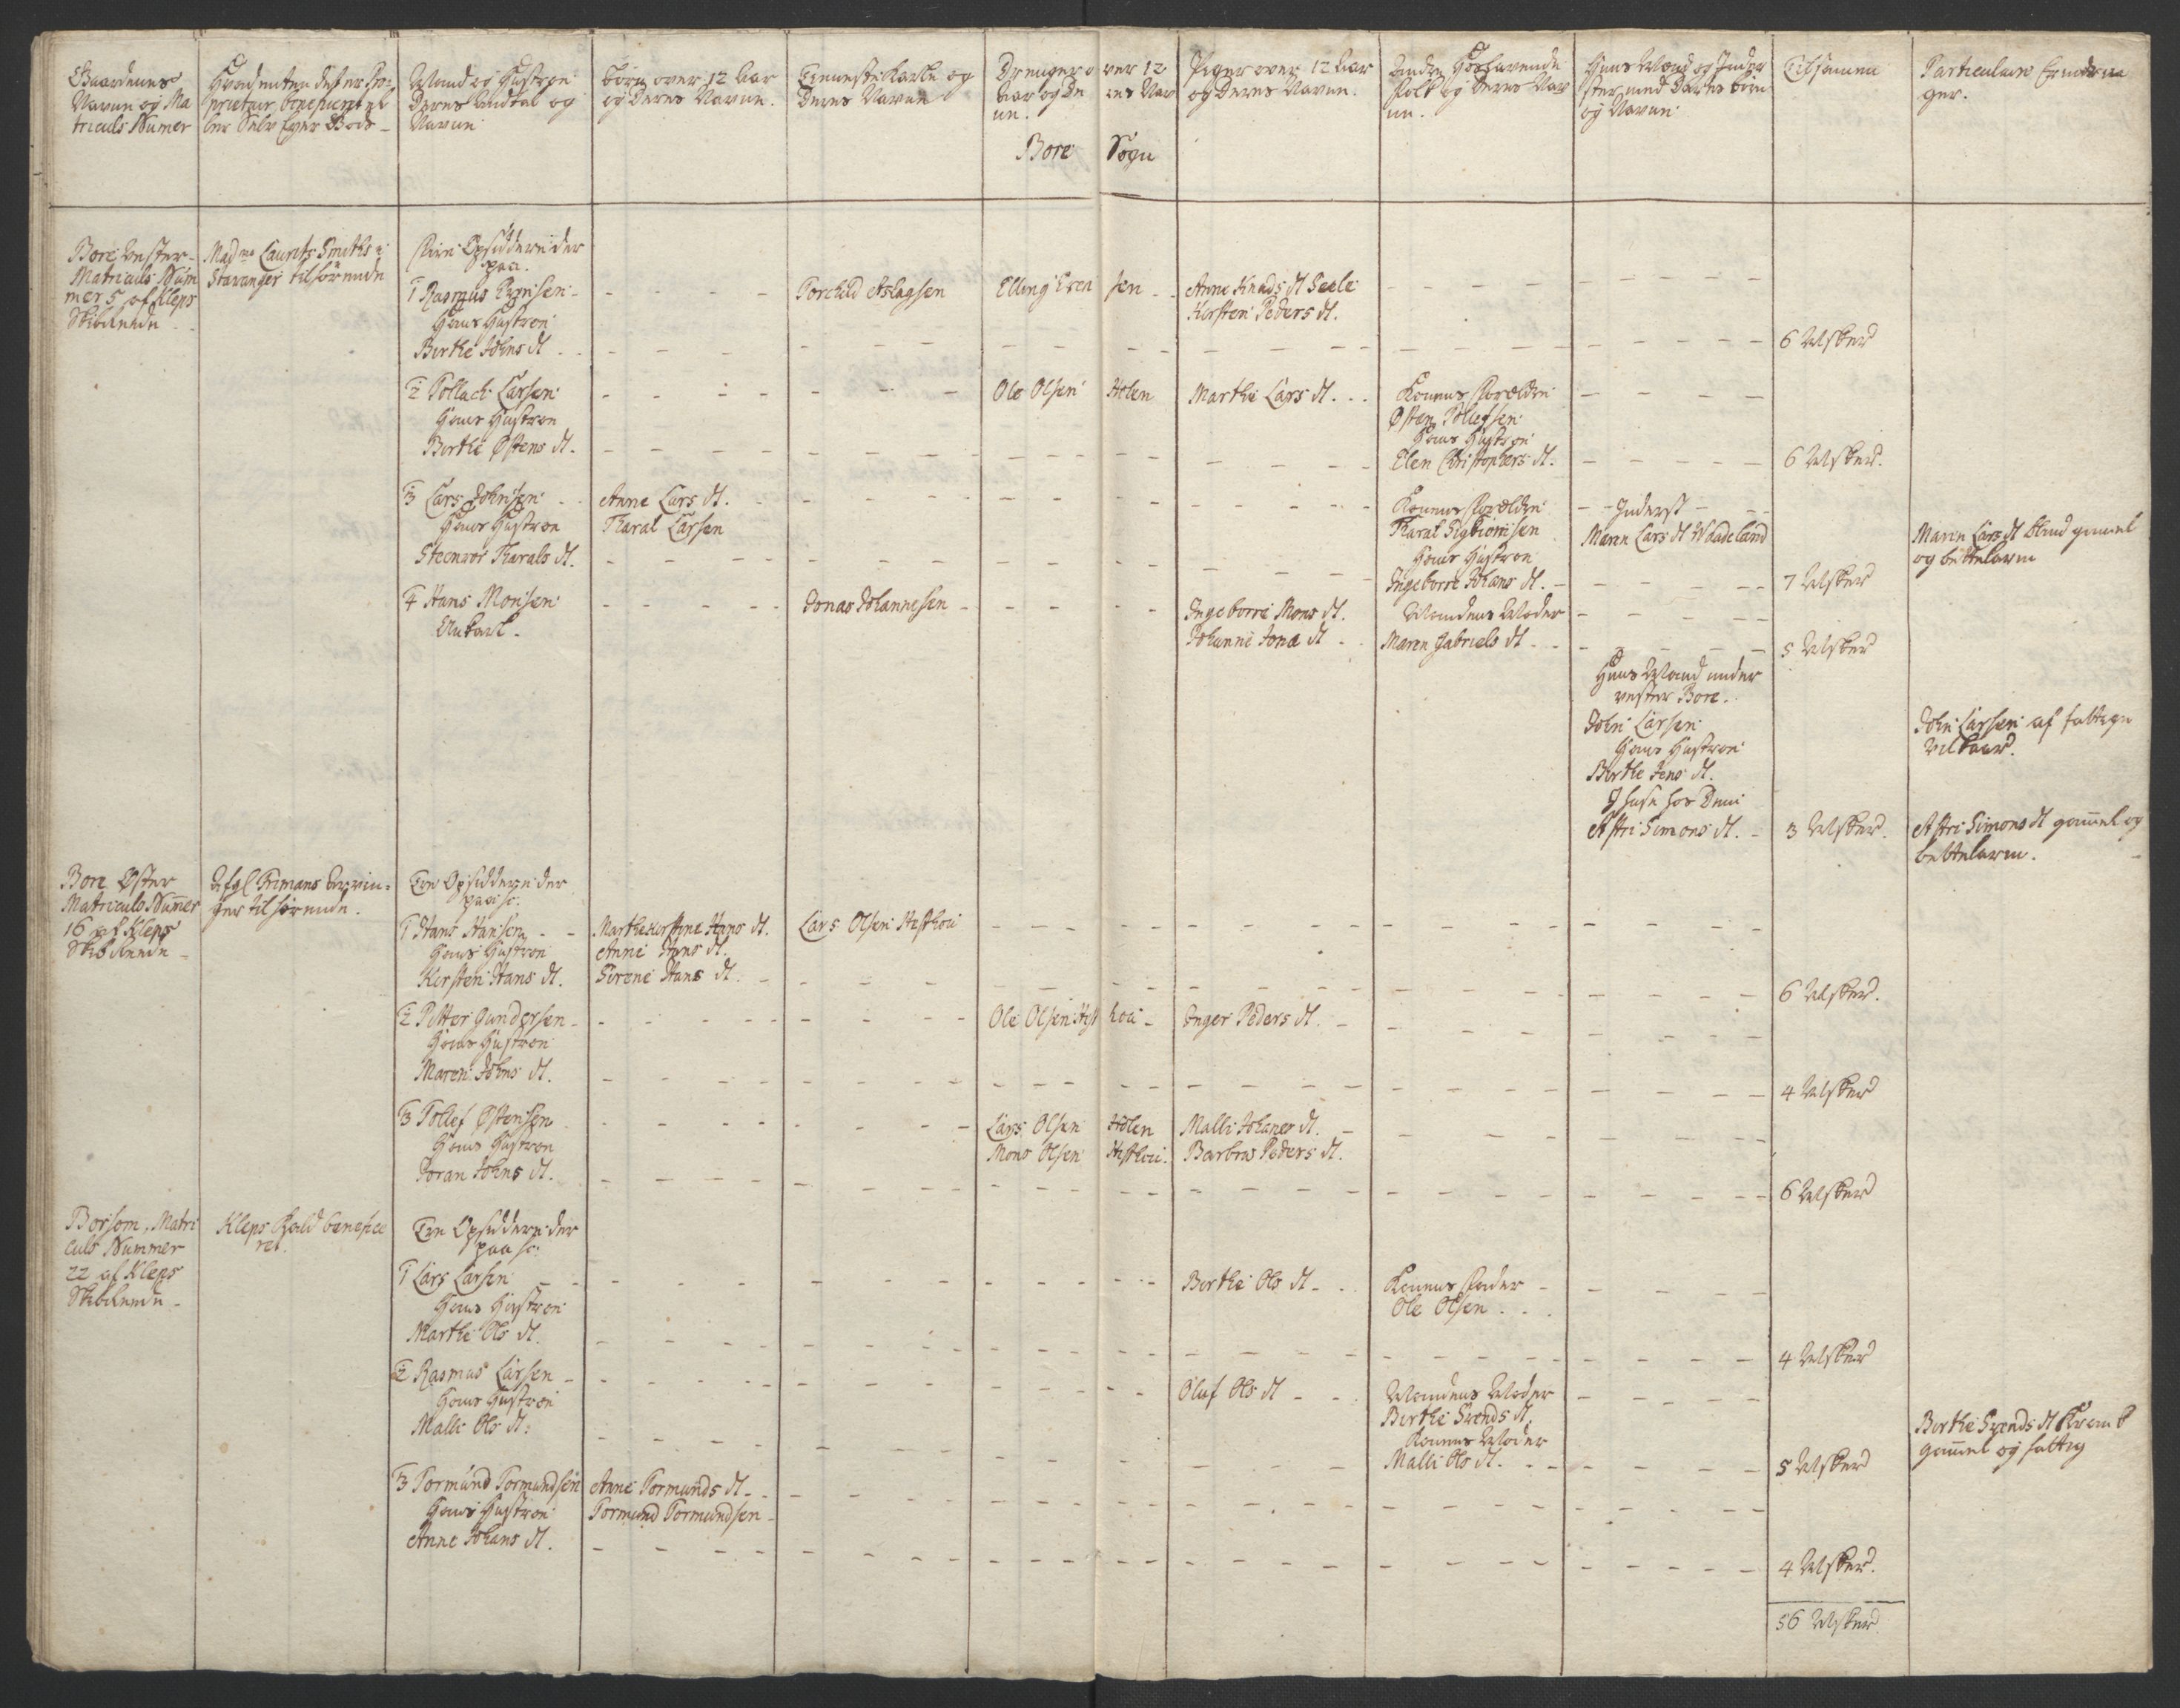 Gaardenes
Navne og Ma
triculs Numer
Hvad enten de er Pro-
prietair, beneficeret el
ler Selv Eyer Gods -
Mand og Hustroe
Deres Antal og
Navne
børn over 12 Aar
og Deres Navne.
Tienneste Karle og
Deres Navne
Drenger over 12
Aar og Deres Nav
ne.
Piger over 12 Aar
og Deres Navne.
Andre Hosværende
folk og Deres Nav
ne.
Huus Mænd og Inder
ster med Deres børn
og Navne
Tilsamen
Particulaire Erindrin
ger.
Bore Sogn
Bore Vester -
Matriculs Num
mer 5 af Kleps
Skibrende
Mad.me Laurits Smiths i
Stavanger tilhørende
Fiire Opsiddere der
paa.
1 Rasmus Evensen -
Hans Hustroe
Berthe Johns dt
Torchild Aslagsen
Elling Evensen
Anne Knuds dt Seele
Kirsten Peders dt.
6 Msker
2 Tollach Larsen
Hans Hustroe
Berthe Østens dt.
Ole Olsen Holen
Marthe Lars dt.
Konens Forældre
Østen Tollefsen
Hans Hustroe
Elen Christophers dt.
6 Msker.
3 Lars Johnsen
Hans Hustroe
Steenvor Tharals dt.
Anne Lars dt.
Tharal Larsen
Konens Forældre
Tharal Sigbiørnsen
Hans Hustroe
Ingeborre Johans dt.
Inderst
Maren Lars dt Wadeland
7 Msker
Maren Lars dt blind gamel
og bettelarm
4 Hans Monsen
Enkarl.
Jonas Johannesen
Ingeborre Mons dt.
Johanne Jona dt
Mandens Moder
Maren Gabriels dt
5 Msker
Huus Mand under
vester Bore.
John Larsen
Hans Hustroe
Berthe Jens dt.
I huse hos Dem
Astri Simons dt.
3 Msker.
John Larsen af fattige
vilkaar.
Astri Simons dt gammel og
bettelarm.
Bore Øster
Matriculs Nummer
16 af Kleps
Skibrende
Afgl Frimans Arvin-
ger tilhørende.
Tre Opsiddere der
paa sc:
1 Hans Hansen
Hans Hustroe
Kirsten Hans dt.
Marthe Kirstine Hans dt.
Anne Hans dt.
Sirene Hans dt.
Lars Olsen Hesthoi
6 Msker.
2 Petter Gundersen
Hans Hustroe
Maren Johns dt.
Ole Olsen Hesthoi
Inger Peders dt.
4 Msker
3 Tollef Østensen
Hans Hustroe
Joran Johns dt.
Lars Olsen Holen
Mons Olsen Hesthoi.
Malli Johanes dt.
Barbra Peders dt.
6 Msker
Borsom, Matri
culs Nummer
22 af Kleps
Skibrende
Kleps Kald benefice
ret.
Tre Opsiddere der
paa sc:
1 Lars Larsen
Hans Hustroe
Marthe Ols dt.
Berthe Ols dt
Konens Fader
Ole Olsen
4 Msker
2 Rasmus Larsen
Hans Hustroe
Malli Ols dt:
Oluf Ols dt
Mandens Moder
Berthe Svends dt.
Konens Moder
Malli Ols dt.
5 Msker
Berthe Svends dt Krank
gammel og fattig
3 Tormund Tormundsen
Hans Hustroe
Anne Johans dt.
Anne Tormunds dt
Tormund Tormundsen
4 Msker.
56 Msker.